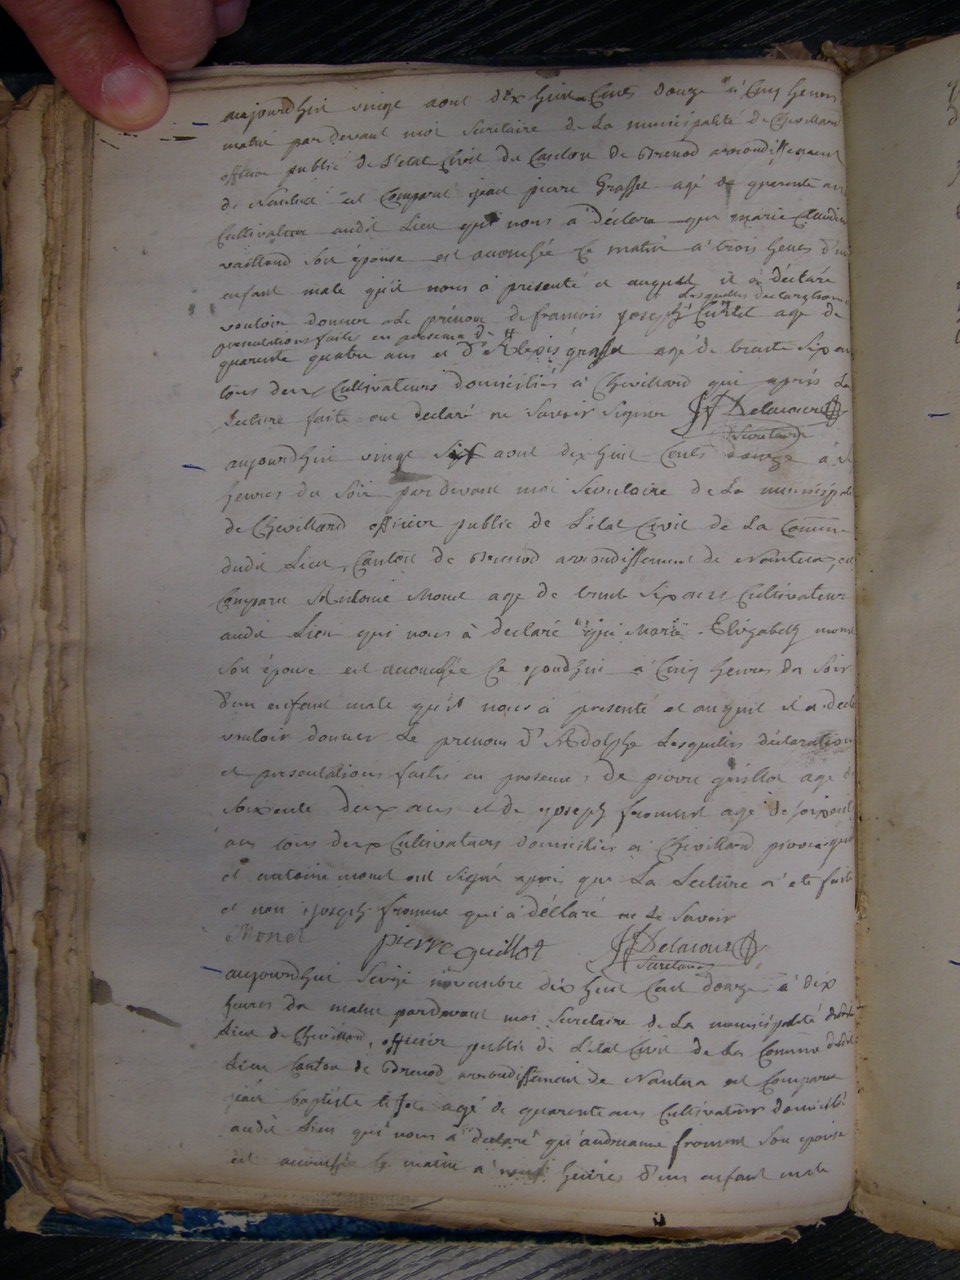 aujourdhui vingt aout dix huit Cents douze à Cinq heures
matin par devant moi Secretaire de La municipalité de Chevillard
officier public de L'etat Civil du Canton de Brenod arrondissement
de Nantua est Comparu jean pierre Grasset agé de quarente ans
Cultivateur audit Lieu qui nous à déclaré que marie Claudine
vaillend son épouse est accouchée Ce matin à trois heures d'un
enfant male qu'il nous à presenté et auquel il à déclaré
vouloir donner Le prénom de francois joseph Curtet agé de
Lesquelles declarations
presentations faites en presence de
quarente quatre ans et d'Alexis grasset agé de trente Six ans
tous deux Cultivateurs domiciliés à Chevillard qui après La
Lecture faite ont déclaré ne Savoir Signer Delacour
Secretaire
aujourdhui vingt Six aout dix huit Cents douze à
heures du Soir par devant moi Secretaire de La municipali
de Chevillard officier public de L'état Civil de La Commune
dudit Lieu, Canton de Brenod arrondissement de Nantua, est
Comparu Antoine Monet agé de trente Six ans Cultivateur
audit Lieu qui nous à declaré que Marie Elizabeth monet
Son épouse est accouchée Ce jourdhui à Cinq heures du Soir
d'un enfant male qu'il nous à presenté et auquel il a decla
vouloir donner Le prenom d'Adolphe Lesquelles déclarations
et presentations faites en presence de pierre guillot agé de
Soixente deux ans et de joseph froment agé de soixente
ans tous deux Cultivateurs domiciliés à Chevillard pierre guil
et antoine monet ont Signé après que La Lecture a été faite
et non joseph froment qui à déclaré ne Le Savoir
Monet pierre guillot Delacour
Secretaire
aujourdhui Seize novembre dix huit Cent douze à dix
heures du matin pardevant moi Secretaire de La municipalité dudit
Lieu de Chevillard, officier public de L'état Civil de La Commune dudit
Lieu Canton de Brenod arrondissement de Nantua est Comparu
jean baptiste agé de quarente ans Cultivateur domicilié
audit Lieu qui nous à declaré qu'andreanne froment Son epouse
est accouchée Ce matin à neuf heures d'un enfant male